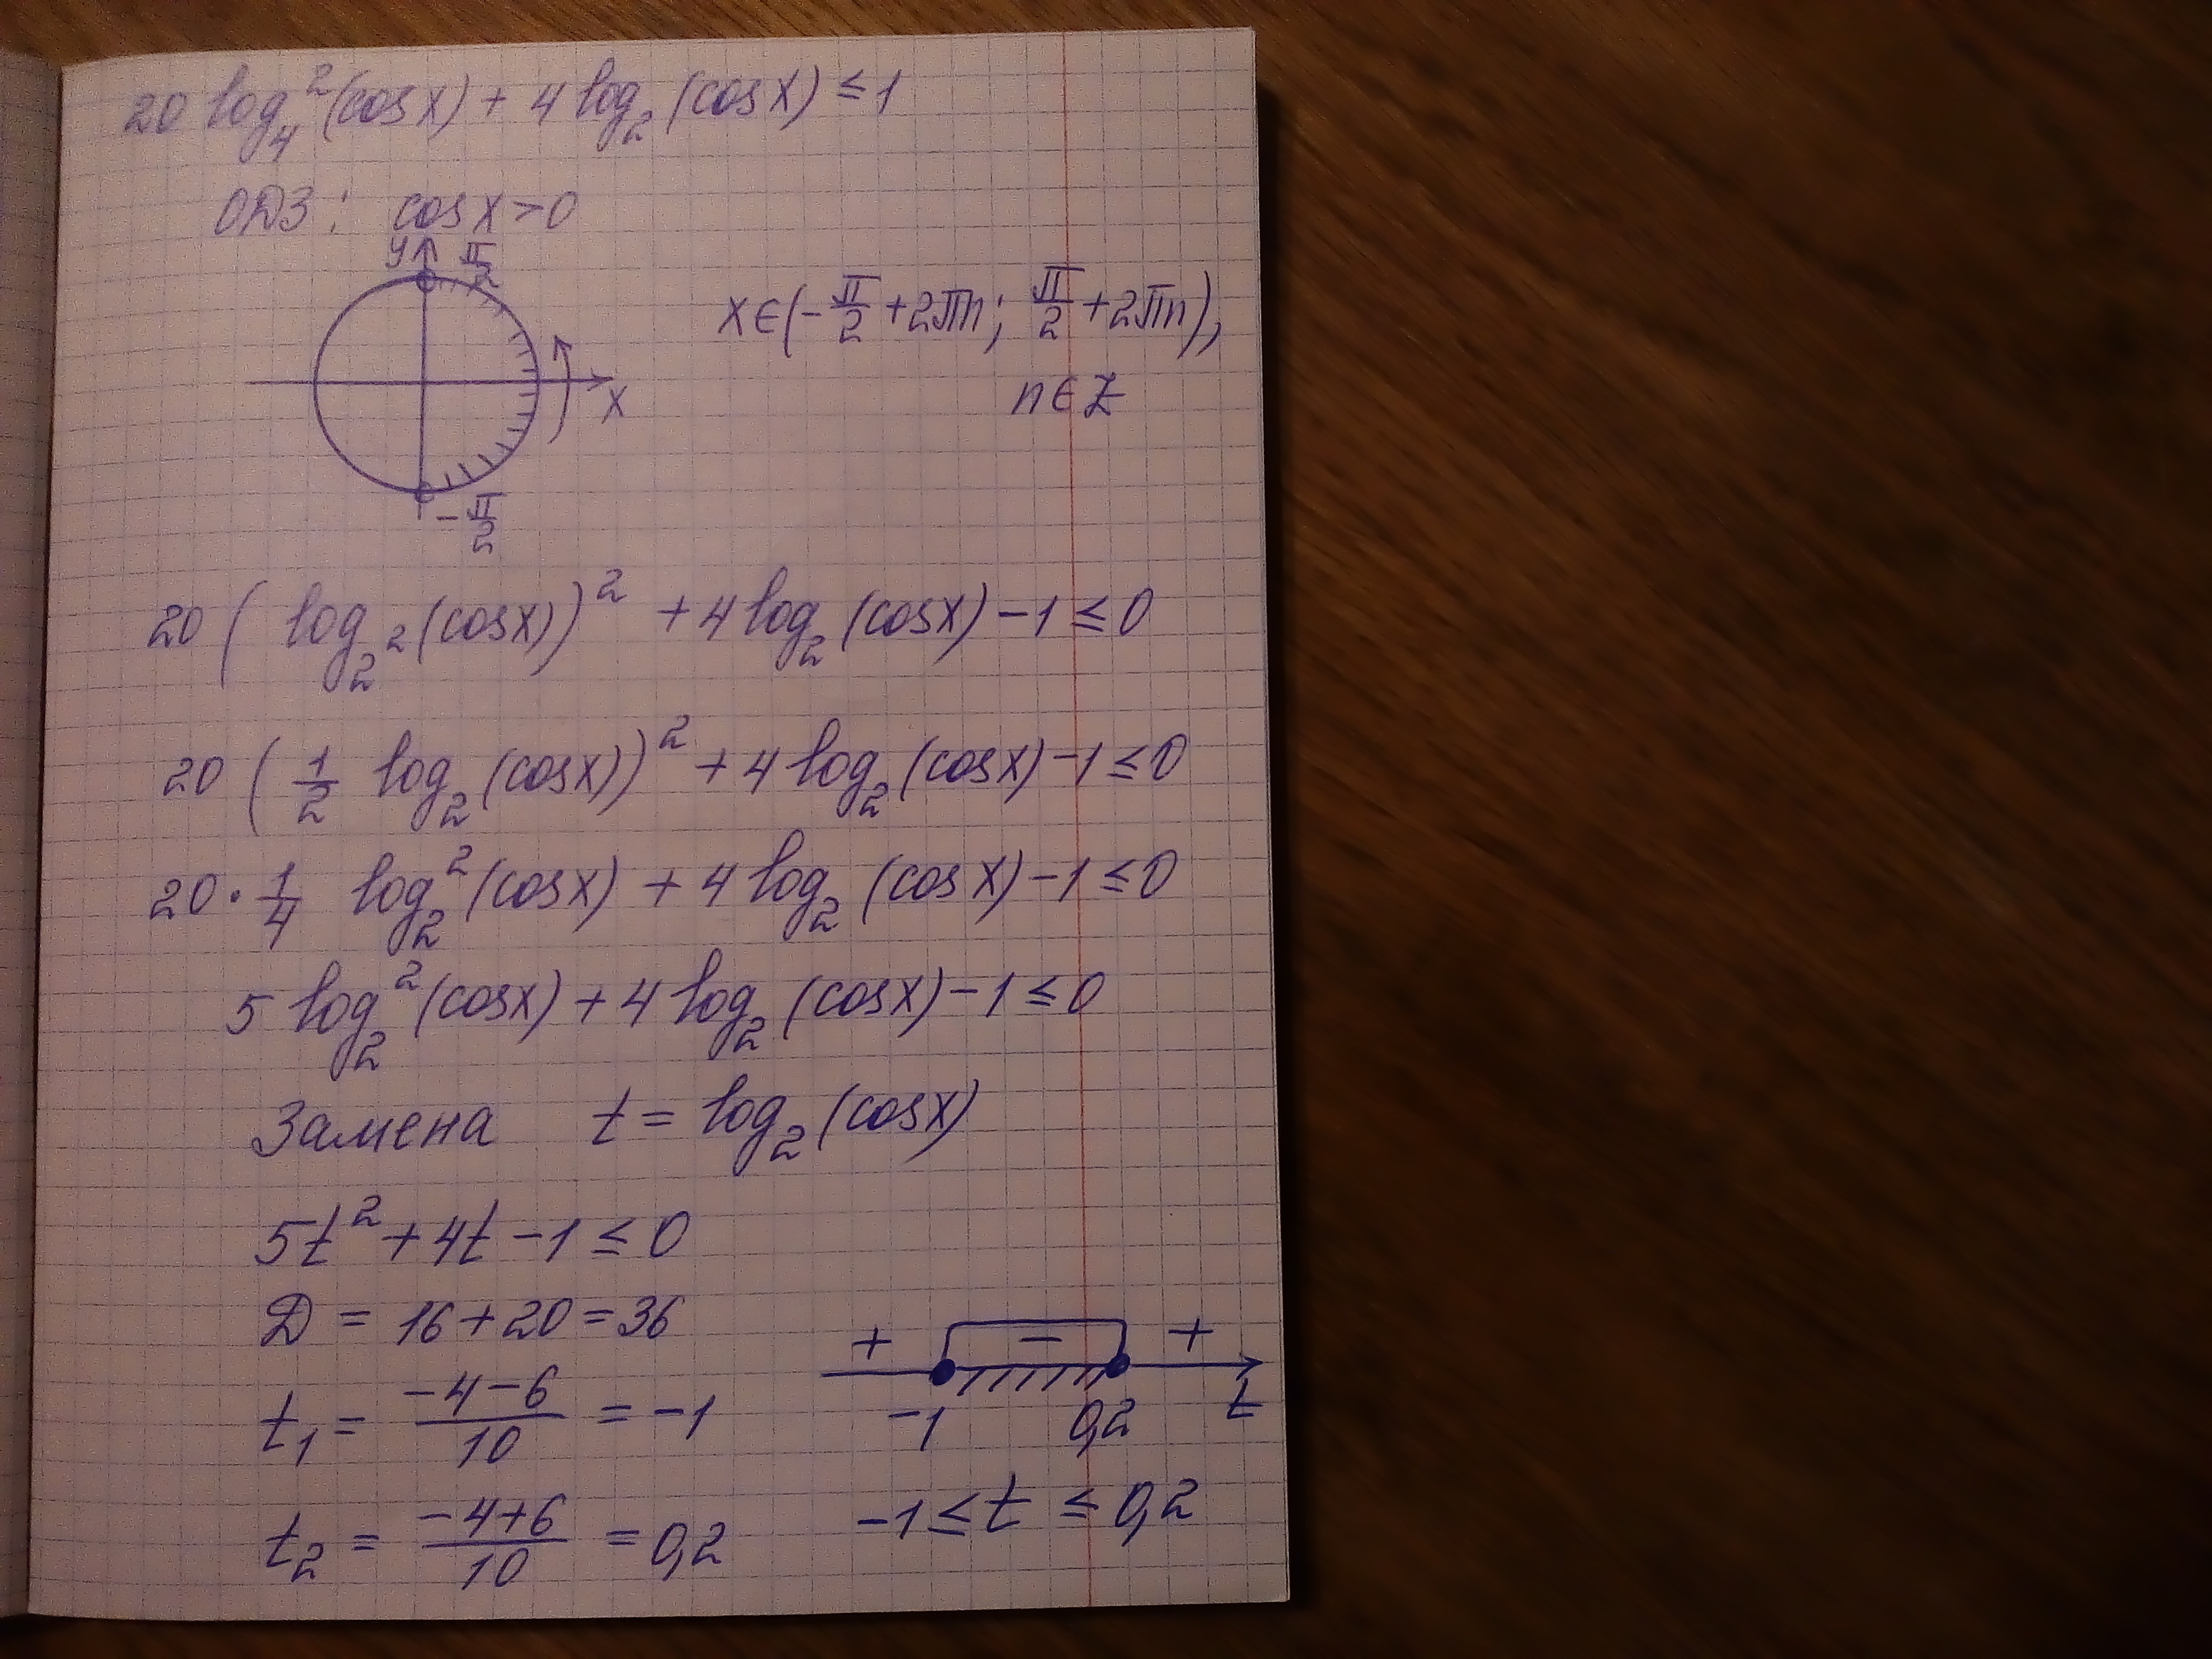 20 log₄²(cosx) + 4 log₂(cosx) ≤ 1
ОДЗ: cosx > 0
y π/2
x ∈ (-π/2 + 2πn; π/2 + 2πn),
x
n ∈ Z
-π/2
20 (log_{2²}(cosx))² + 4 log₂(cosx) - 1 ≤ 0
20 (1/2 log₂(cosx))² + 4 log₂(cosx) - 1 ≤ 0
20 · 1/4 log₂²(cosx) + 4 log₂(cosx) - 1 ≤ 0
5 log₂²(cosx) + 4 log₂(cosx) - 1 ≤ 0
Замена t = log₂(cosx)
5t² + 4t - 1 ≤ 0
D = 16 + 20 = 36
+ - +
t₁ = (-4-6)/10 = -1
-1 0,2 t
t₂ = (-4+6)/10 = 0,2
-1 ≤ t ≤ 0,2